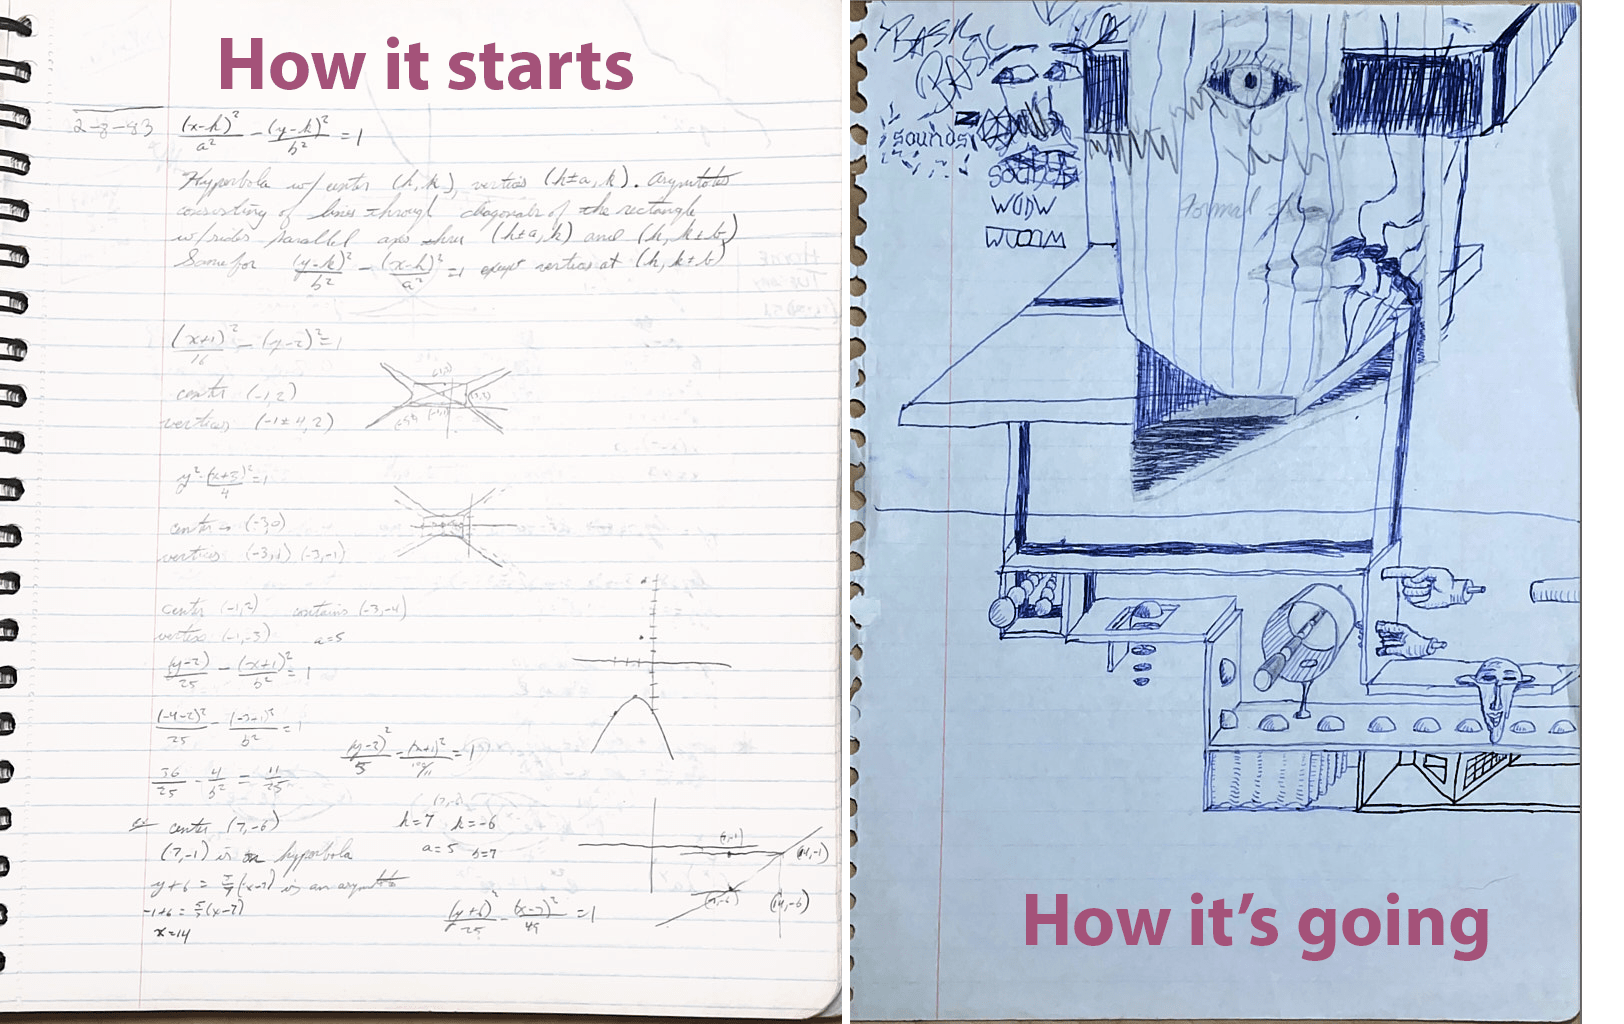 How it starts
2-8-83 (x-h)²/a² - (y-k)²/b² = 1
Hyperbola w/ center (h, k), vertices (h±a, k). Asymtotes
consisting of lines through diagonals of the rectangle
w/ sides parallel axes thru (h±a, k) and (h, k±b)
Same for (y-k)²/b² - (x-h)²/a² = 1 except vertices at (h, k±b)
(x+1)²/16 - (y-2)² = 1
center (-1,2)
vertices (-1±4,2)
y² - (x+3)²/4 = 1
center → (-3,0)
vertices (-3,1) (-3,-1)
center (-1,2) contains (-3,-4)
vertex (-1,-3) a=5
(y-2)²/25 - (x+1)²/b² = 1
(-4-2)²/25 - (-3+1)²/b² = 1
(y-2)²/5 - (x+1)²/100/11 = 1
36/25 - 4/b² = 11/25
center (7,-6)
(7,-1) is on hyperbola
y+6 = 5/7(x-7) is an asymtote
-1+6 = 5/7(x-7)
x=14
(7,-6)
h=7 k=-6
a=5 b=7
(y+6)²/25 - (x-7)²/49 = 1
(7,-1)
(14,-1)
(7,-6)
(14,-6)
BASIC
BASIC
sounds
WOW
WOOM
formal
How it's going